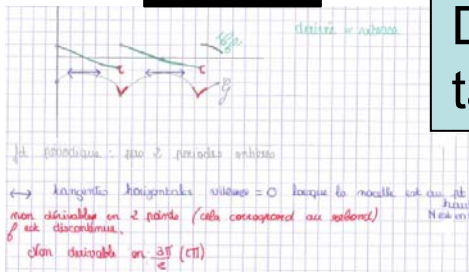 dérivée = vitesse
D
ta
fct périodique : pas 2 périodes entières
↔ tangentes horizontales vitesse = 0 lorsque la nacelle est au pt
haut
non dérivable en 2 points (cela correspond au rebond)
f' est discontinue.
Non dérivable en 3π/2 (π)